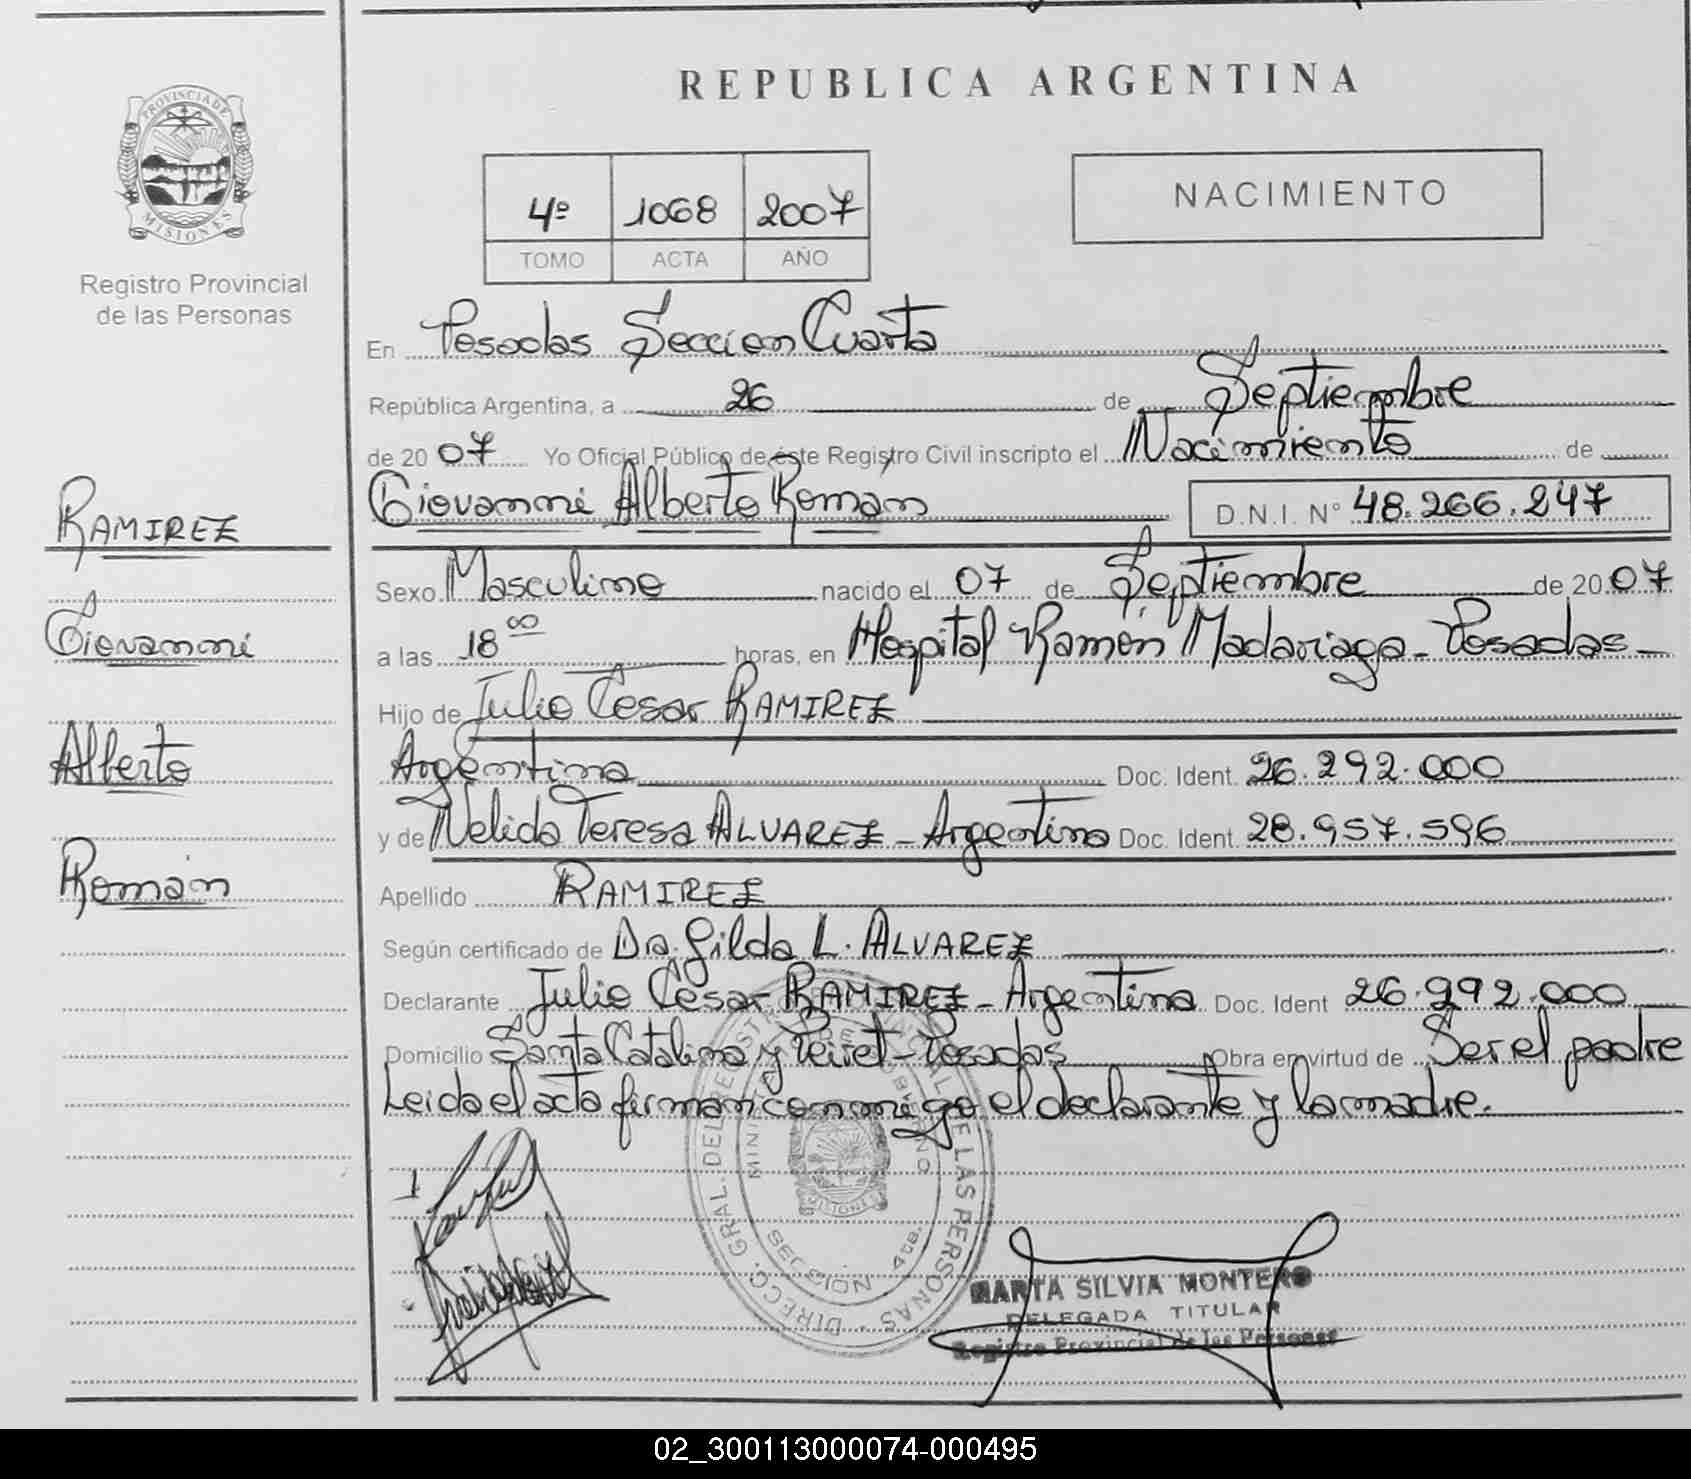 REPUBLICA ARGENTINA
PROVINCIA DE
MISIONES
Registro Provincial
de las Personas
4º 1068 2007
TOMO ACTA AÑO
NACIMIENTO
En Posadas Seccion Cuarta
República Argentina, a 26 de Septiembre
de 2007 Yo Oficial Público de éste Registro Civil inscripto el Nacimiento de
Giovanni Alberto Román D.N.I. N° 48.266.247
RAMIREZ
Giovanni
Alberto
Román
Sexo Masculino nacido el 07 de Septiembre de 2007
a las 18 00 horas, en Hospital Ramón Madariaga - Posadas -
Hijo de Julio Cesar RAMIREZ
Argentino Doc. Ident. 26.292.000
y de Nelida Teresa ALVAREZ - Argentina Doc. Ident. 28.957.596
Apellido RAMIREZ
Según certificado de Dra. Gilda L. ALVAREZ
Declarante Julio Cesar RAMIREZ - Argentino Doc. Ident 26.292.000
Domicilio Santa Catalina y - Posadas Obra en virtud de Ser el padre
Leida el acta firman conmigo el declarante y la madre.
DE LAS PERSONAS
DIRECC. GRAL. DEL
MISIONES
MARTA SILVIA MONTERO
DELEGADA TITULAR
Registro Provincial de las Personas
02_300113000074-000495